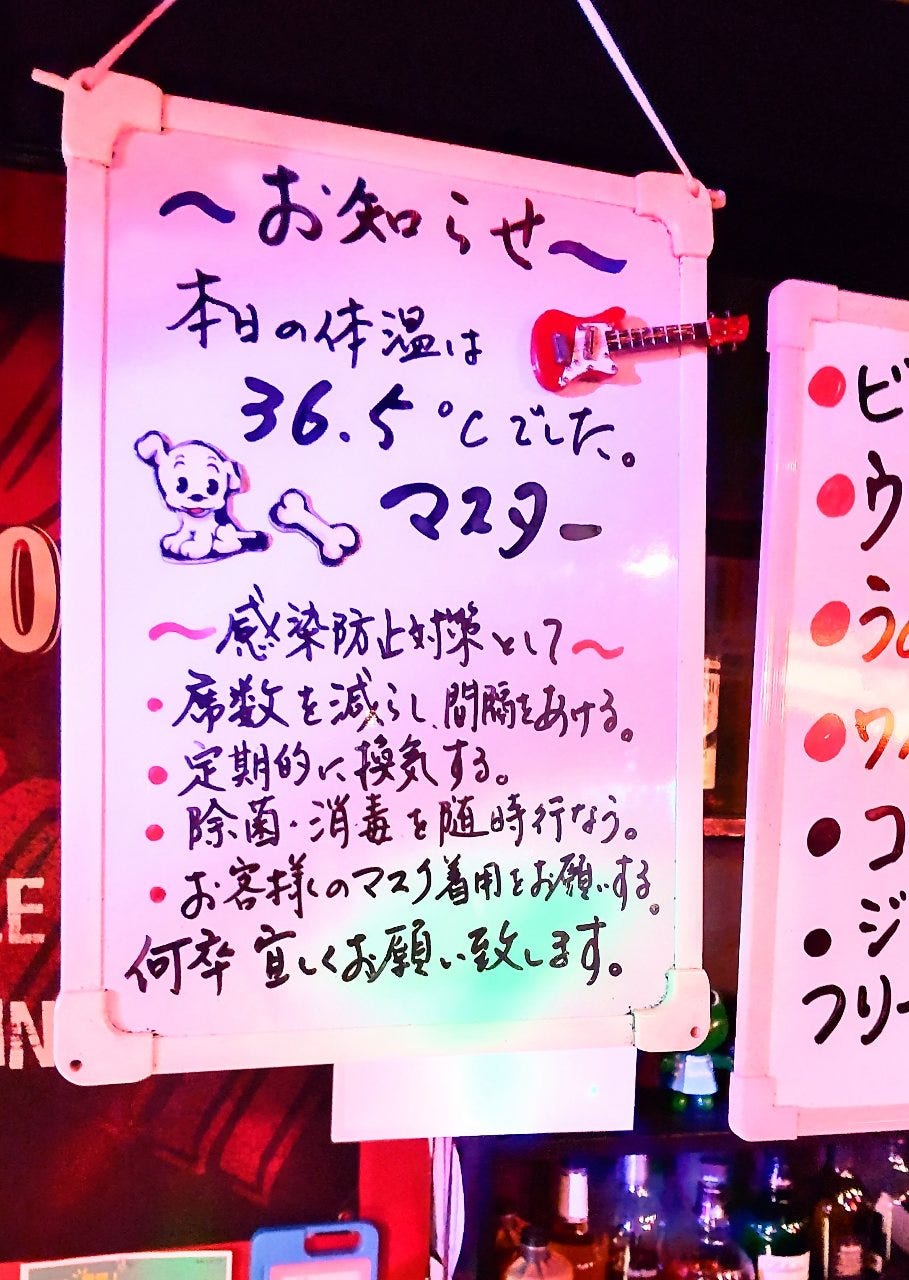 ～お知らせ～
本日の体温は
36.5℃でした。
マスター
～感染防止対策として～
・席数を減らし、間隔をあける。
・定期的に換気する。
・除菌・消毒を随時行なう。
・お客様のマスク着用をお願いする。
何卒宜しくお願い致します。
●ビ
●ウ
●う
●ワ
●コ
●ジ
フリー
O
LE
IN